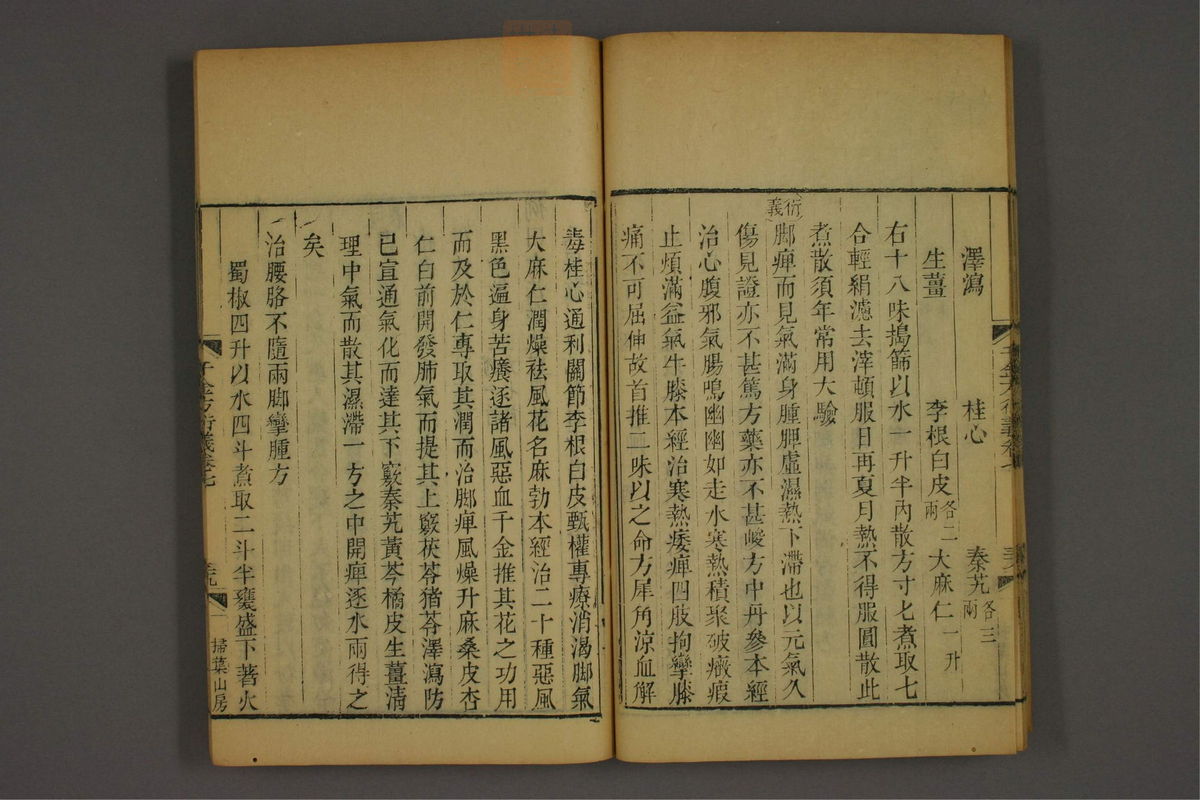 澤瀉 桂心 秦艽各三兩
生薑 李根白皮各二兩 大麻仁一升
右十八味搗篩以水一升半內散方寸匕煮取七
合輕絹濾去滓頓服日再夏月熱不得服圓散此
煮散須年常用大驗
衍義
脚痺而見氣滿身腫脾虛濕熱下滯也以元氣久
傷見證亦不甚篤方藥亦不甚峻方中丹參本經
治心腹邪氣腸鳴幽幽如走水寒熱積聚破癥瘕
止煩滿益氣牛膝本經治寒熱痿痺四肢拘攣膝
痛不可屈伸故首推二味以之命方犀角涼血解
毒桂心通利關節李根白皮甄權專療消渴脚氣
大麻仁潤燥祛風花名麻勃本經治二十種惡風
黑色遍身苦癢逐諸風惡血千金推其花之功用
而及於仁專取其潤而治脚痺風燥升麻桑皮杏
仁白前開發肺氣而提其上竅茯苓猪苓澤瀉防
已宣通氣化而達其下竅秦艽黃芩橘皮生薑清
理中氣而散其濕滯一方之中開痺逐水兩得之
矣
治腰胳不隨兩脚攣腫方
蜀椒四升以水四斗煮取二斗半甕盛下著火
千金方衍義卷七
掃葉山房